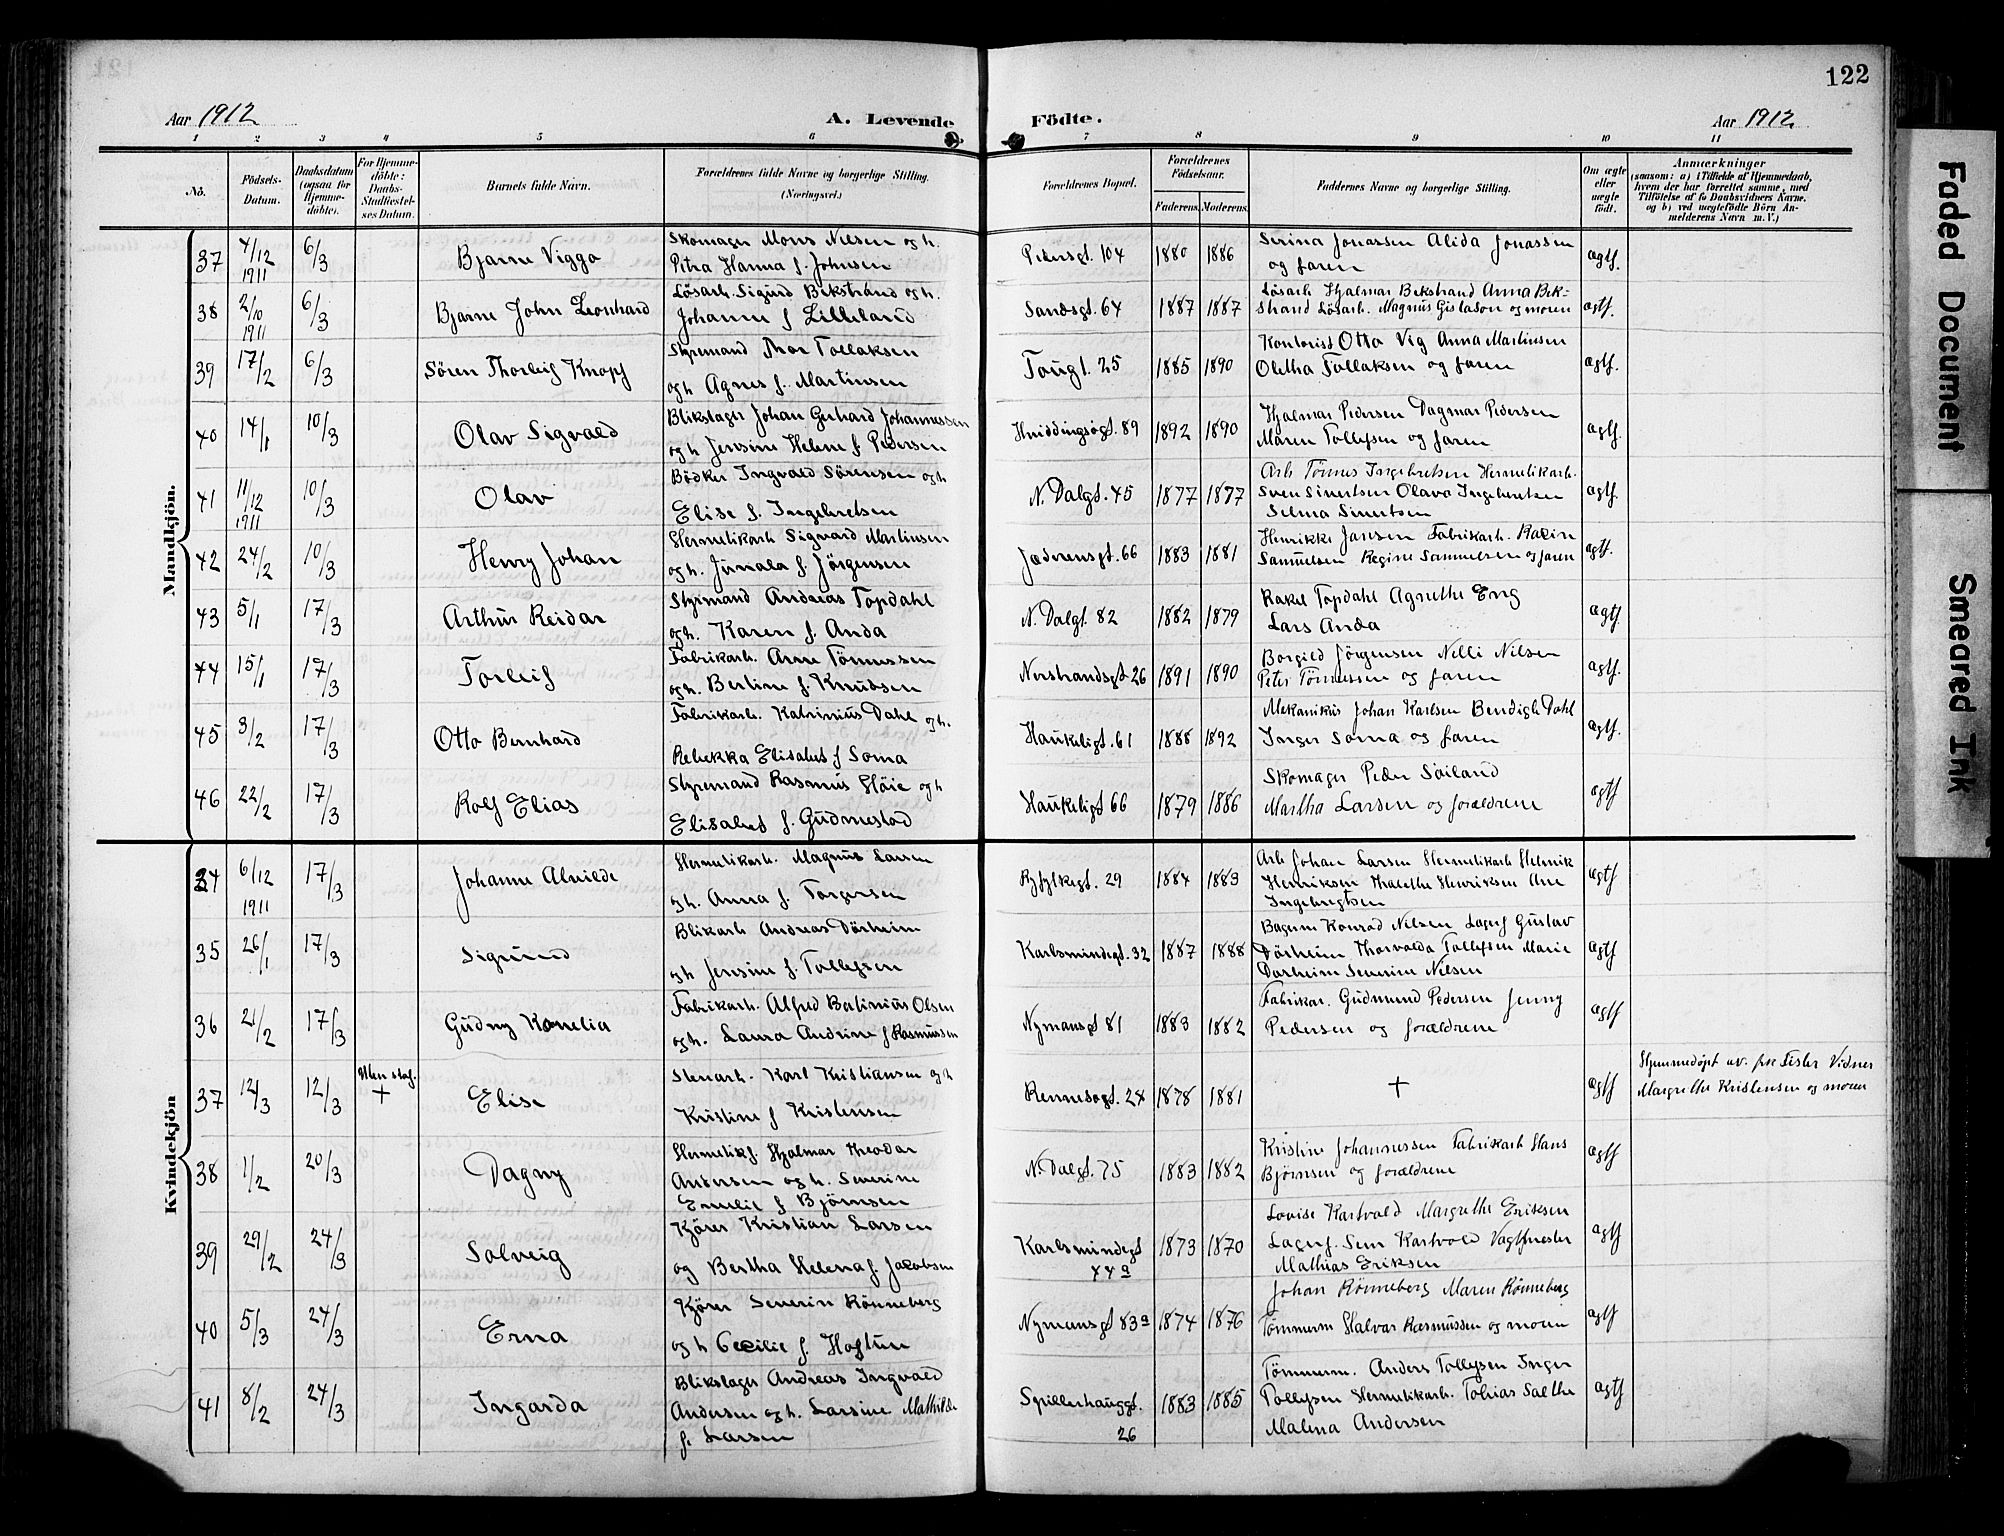 122
Aar 1912
A. Levende
Födte.
Aar 1912
1 2 3 4 5 6 7 8 9 10 11
No.
Födsels-Datum.
Daabsdatum (ogsaa for Hjemme-döbte).
For Hjemme-döbte: Daabs-Stadfæstel-ses Datum.
Barnets fulde Navn.
Forældrenes fulde Navne og borgerlige Stilling.
(Næringsvei.)
Forældrenes Bopæl.
Forældrenes Födselsaar.
Faderens. Moderens.
Faddernes Navne og borgerlige Stilling.
Om ægte eller uægte födt.
Anmærkninger
(saasom: a) i Tilfælde af Hjemmedaab, hvem der har forrettet samme, med Tilföielse af to Daabsvidners Navne, og b) ved uægtefödte Börn An-melderens Navn m. V.)
Mandkjön.
37 4/12 1911 6/3 Bjarne Viggo
Skomager Mons Nilsen og h.
Petra Hanna f. Johnsen
Pedersgt. 104 1880 1886
Serina Jonassen Alida Jonassen
og faren
ægtf.
38 2/10 1911 6/3 Bjarne John Leonhard
Lösarb. Sigurd Bekstrand og h.
Johanne f Lilleland
Sandsgt. 64 1887 1887
Lösarb Hjalmar Bekstrand Anna Bek-
strand Lösarb. Magnus Gistason og moren
ægtf.
39 17/2 6/3 Sören Thorleif Knopf
Styrmand Thor Tollaksen
og h Agnes f. Martinsen
Tougt. 25 1885 1890
Kontorist Otto Vig Anna Martinsen
Oletha Tollaksen og faren
ægtf.
40 14/1 10/3 Olav Sigvald
Blikslager Johan Gerhard Johannessen
og h Jensine Helene f. Pedersen
Hviddingsögt. 89 1892 1890
Hjalmar Pedersen Dagmar Pedersen
Maren Tollefsen og faren
ægtf.
41 11/12 1911 10/3 Olav
Bödker Ingvald Sörensen og h
Elise f. Ingebretsen
N. Dalgt. 45 1877 1877
Arb Tönnes Ingebretsen Hermetikarb.
Sven Sivertsen Olava Ingebretsen
Selma Sivertsen
ægtf.
42 24/2 10/3 Henry Johan
Hermetikarb Sigvard Martinsen
og h. f. Jörgensen
Jæderensgt. 66 1883 1881
Henrikke Jansen Fabrikarb.
Samuelsen Regine Samuelsen og faren
ægtf.
43 5/1 17/3 Arthur Reidar
Styrmand Andreas Topdahl
og h. Karen f. Anda
N. Dalgt. 82 1882 1879
Rakel Topdahl Agnethe Eng
Lars Anda
ægtf
44 15/1 17/3 Torleif
Fabrikarb. Arne Tönnessen
og h. Berline f. Knudsen
Norstrandsgt 26 1891 1890
Borgild Jörgensen Nelli Nilsen
Peter Tönnessen og faren
ægtf.
45 3/2 17/3 Otto Bernhard
Fabrikarb. Katrinius Dahl og h.
Rebekka Elisabet f Soma
Haukeligt. 61 1888 1892
Mekanikus Johan Karlsen Bendigte Dahl
Inger Soma og faren
ægtf.
46 22/2 17/3 Rolf Elias
Styrmand Rasmus Höie og h
Elisabet f. Gudmestad
Haukeligt 66 1879 1886
Skomager Peder Söiland
Martha Larsen og forældrene
ægtf
Kvindekjön
34 6/12 1911 17/3 Johanne Alvilde
Hermetikarb. Magnus Larsen
og h. Anna f. Torgersen
Ryfylkegt. 29 1884 1883
Arb Johan Larsen Hermetikarb Helmik
Henriksen Thalethe Henriksen Ane
Ingebregtsen
ægtf
35 26/1 17/3 Sigrund
Blikarb Andreas Dörheim
og h Jensine f. Tollefsen
Karlsmindegt. 32 1887 1888
Bagerm Konrad Nilsen Lagerf Gustav
Dörheim Thorvalda Tollefsen Marie
Dorheim Severine Nilsen
ægtf
36 21/2 17/3 Gudny Kornelia
Fabrikarb. Alfred Batinius Olsen
og h. Laura Andrine f Rasmussen
Nymansgt 81 1883 1882
Fabrikar. Gudmund Pedersen Jenny
Pedersen og forældrene
ægtf
37 12/3 12/3 Uten staf. + Elise
Stenarb. Karl Kristiansen og h
Kristine f Kristensen
Rennesögt. 24 1878 1881
+
ægtf
Hjemmedöpt av. frk Tester Vidner
Margrethe Kristensen og moren
38 1/2 20/3 Dagny
Hermetikf. Hjalmar Theodor
Andersen og h. Severine
Emelie f Björnsen
N. Dalgt. 75 1883 1882
Kristine Johannessen Fabrikarb Hans
Björnsen og forældrene
ægtf
39 29/2 24/3 Solveig
Kjörer Kristian Larsen
og Bertha Helena f. Jacobsen
Karlsmindegt 44a 1873 1870
Lovise Kartvold Margrethe Eriksen
Lagerf. Sem Kartvold Vagtmester
Mathias Eriksen
ægtf
40 5/3 24/3 Erna
Kjörer Severin Rönneberg
og h Cecilie f. Hoftun
Nymansgt 83a 1874 1876
Johan Rönneberg Maren Rönneberg
Tömmerm Halvar Rasmussen og moren
ægtf
41 8/2 24/3 Ingarda
Blikslager Andreas Ingvald
Andersen og h. Larsine Mathilde
f. Larsen
Spillerhauggt. 26 1883 1885
Tömmerm. Anders Tollefsen Inger
Tollefsen Hermetikarb. Tobias Salthe
Malena Andersen
ægtf
Faded Document
Smeared Ink